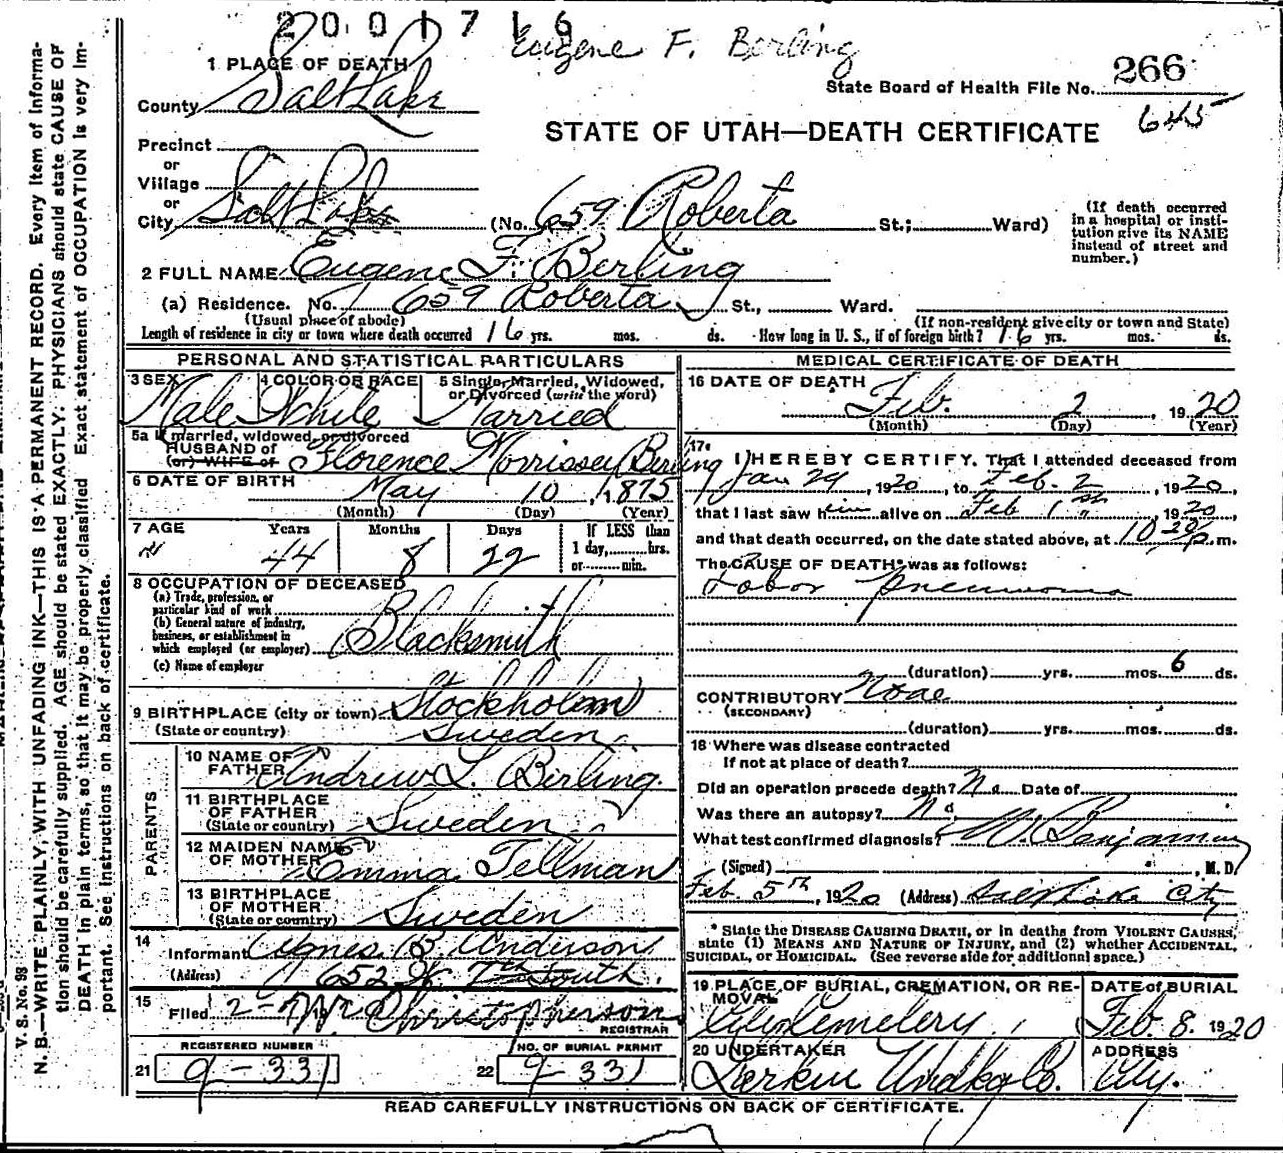 2001716
Eugene F. Berling
1 PLACE OF DEATH
County Salt Lake
State Board of Health File No. 266
645
STATE OF UTAH—DEATH CERTIFICATE
Precinct
or
Village
or
City Salt Lake (No. 659 Roberta St.; Ward)
(If death occurred in a hospital or institution give its NAME instead of street and number.)
2 FULL NAME Eugene F. Berling
(a) Residence. No. 659 Roberta St., Ward.
(Usual place of abode) (If non-resident give city or town and State)
Length of residence in city or town where death occurred 16 yrs. mos. ds. How long in U. S., if of foreign birth? 16 yrs. mos. ds.
PERSONAL AND STATISTICAL PARTICULARS
3 SEX Male
4 COLOR OR RACE White
5 Single, Married, Widowed, or Divorced (write the word) Married
5a If married, widowed, or divorced
HUSBAND of
(or) WIFE of Florence Morrissey Berling
6 DATE OF BIRTH May 10, 1875
(Month) (Day) (Year)
7 AGE Years Months Days If LESS than
44 8 22 1 day, hrs.
or min.
8 OCCUPATION OF DECEASED
(a) Trade, profession, or particular kind of work
(b) General nature of industry, business, or establishment in which employed (or employer) Blacksmith
(c) Name of employer
9 BIRTHPLACE (city or town) Stockholm
(State or country) Sweden
PARENTS
10 NAME OF FATHER Andrew L. Berling
11 BIRTHPLACE OF FATHER (State or country) Sweden
12 MAIDEN NAME OF MOTHER Emma Tellman
13 BIRTHPLACE OF MOTHER (State or country) Sweden
14
Informant Agnes B. Anderson
(Address) 652 W. 7th South.
15
Filed 2-7 Christopherson
REGISTRAR
REGISTERED NUMBER NO. OF BURIAL PERMIT
21 9-331 22 9-331
MEDICAL CERTIFICATE OF DEATH
16 DATE OF DEATH
Feb. 2, 1920
(Month) (Day) (Year)
17
I HEREBY CERTIFY, That I attended deceased from
Jan 29, 1920, to Feb. 2, 1920,
that I last saw him alive on Feb 1st, 1920
and that death occurred, on the date stated above, at 10 p.m.
The CAUSE OF DEATH* was as follows:
Lobor Pneumonia
(duration) yrs. mos. 6 ds.
CONTRIBUTORY None
(SECONDARY)
(duration) yrs. mos. ds.
18 Where was disease contracted
If not at place of death?
Did an operation precede death? No Date of
Was there an autopsy? No
What test confirmed diagnosis?
(Signed) Benjamin, M. D.
Feb. 5th, 1920 (Address) Salt Lake City
* State the DISEASE CAUSING DEATH, or in deaths from VIOLENT CAUSES, state (1) MEANS AND NATURE OF INJURY, and (2) whether ACCIDENTAL, SUICIDAL, or HOMICIDAL. (See reverse side for additional space.)
19 PLACE OF BURIAL, CREMATION, OR REMOVAL City Cemetery
DATE of BURIAL Feb. 8. 1920
20 UNDERTAKER Larkin Undkg Co.
ADDRESS City.
READ CAREFULLY INSTRUCTIONS ON BACK OF CERTIFICATE.
V. S. No. 98
N. B.—WRITE PLAINLY, WITH UNFADING INK—THIS IS A PERMANENT RECORD. Every item of informa-
tion should be carefully supplied. AGE should be stated EXACTLY. PHYSICIANS should state CAUSE OF
DEATH in plain terms, so that it may be properly classified. Exact statement of OCCUPATION is very im-
portant. See instructions on back of certificate.